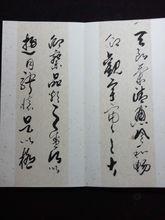 天朗氣清惠風和暢
仰觀宇宙之大
俯察品類之盛所以
遊目騁懷足以極